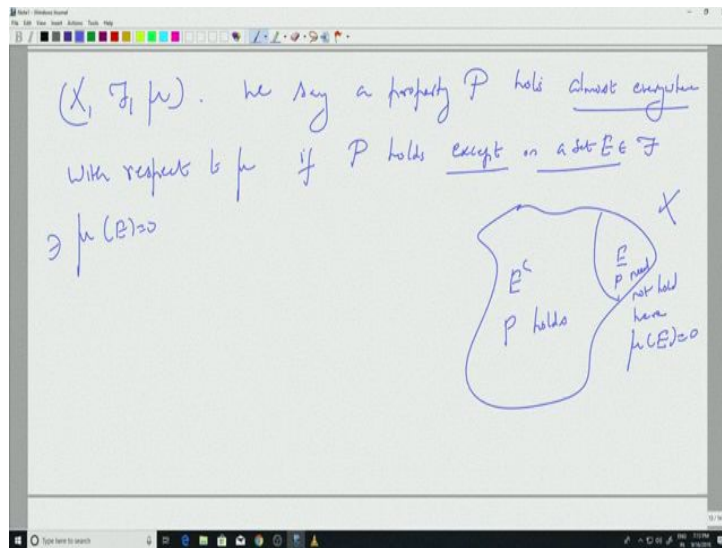 Note1 - Windows Journal
File Edit View Insert Actions Tools Help
(X, F, μ). We say a property P holds almost everywhere
with respect to μ if P holds except on a set E ∈ F
∋ μ(E)=0
X
E^c
P holds
E
P need
not hold
here
μ(E)=0
Type here to search
7:13 PM